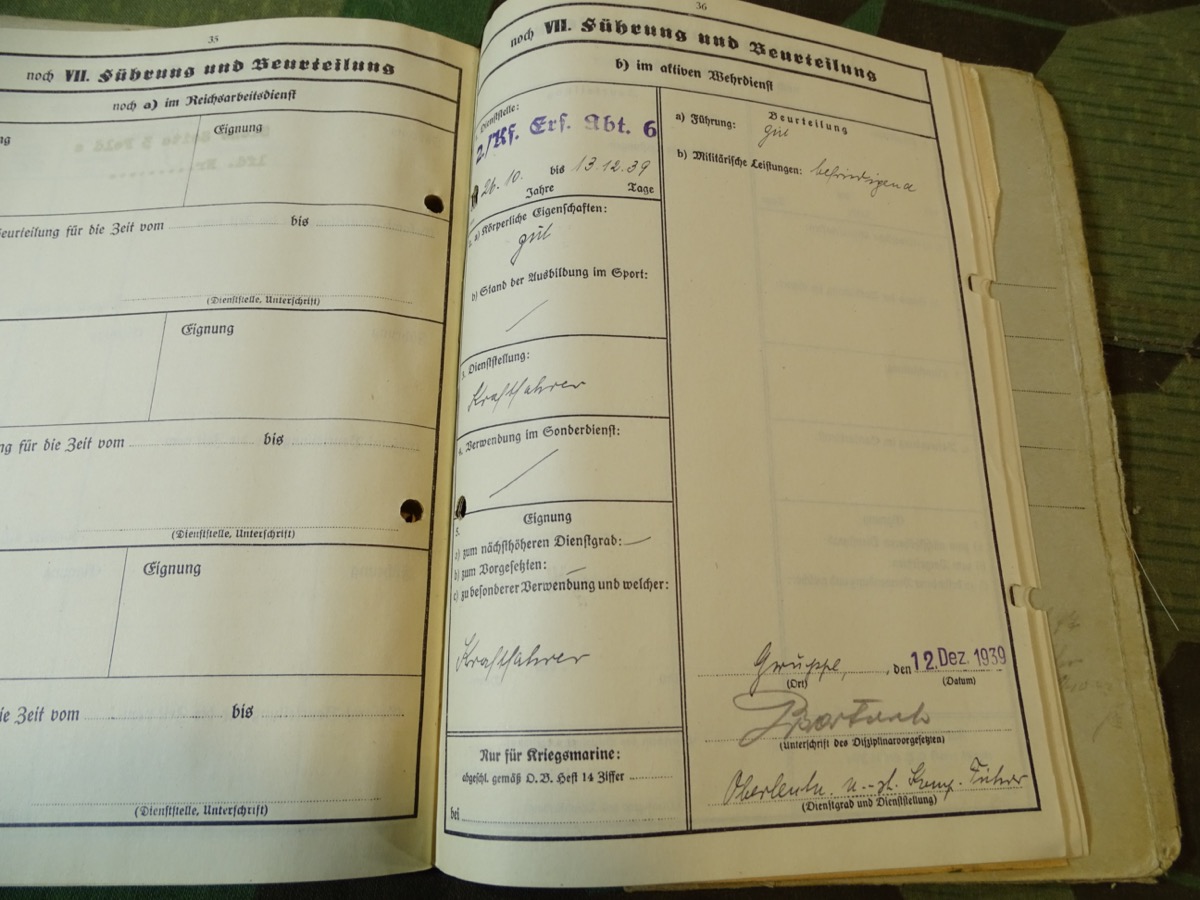 35
noch VII. Führung und Beurteilung
noch a) im Reichsarbeitsdienst
Eignung
Beurteilung für die Zeit vom bis
(Dienststelle, Unterschrift)
Eignung
für die Zeit vom bis
(Dienststelle, Unterschrift)
Eignung
die Zeit vom bis
(Dienststelle, Unterschrift)
36
noch VII. Führung und Beurteilung
b) im aktiven Wehrdienst
Dienststelle:
2./Kf. Ers. Abt. 6
26. 10. bis 13.12.39
Jahre Tage
2. a) Körperliche Eigenschaften:
gut
b) Stand der Ausbildung im Sport:
3. Dienststellung:
Kraftfahrer
4. Verwendung im Sonderdienst:
5. Eignung
a) zum nächsthöheren Dienstgrad: —
b) zum Vorgesetzten: —
c) zu besonderer Verwendung und welcher:
Kraftfahrer
Nur für Kriegsmarine:
abgeschl. gemäß O.B. Heft 14 Ziffer
bei
Beurteilung
a) Führung: gut
b) Militärische Leistungen: befriedigend
, den 12. Dez. 1939
(Ort) (Datum)
(Unterschrift des Disziplinarvorgesetzten)
Oberleutn. u. Komp. Führer
(Dienstgrad und Dienststellung)